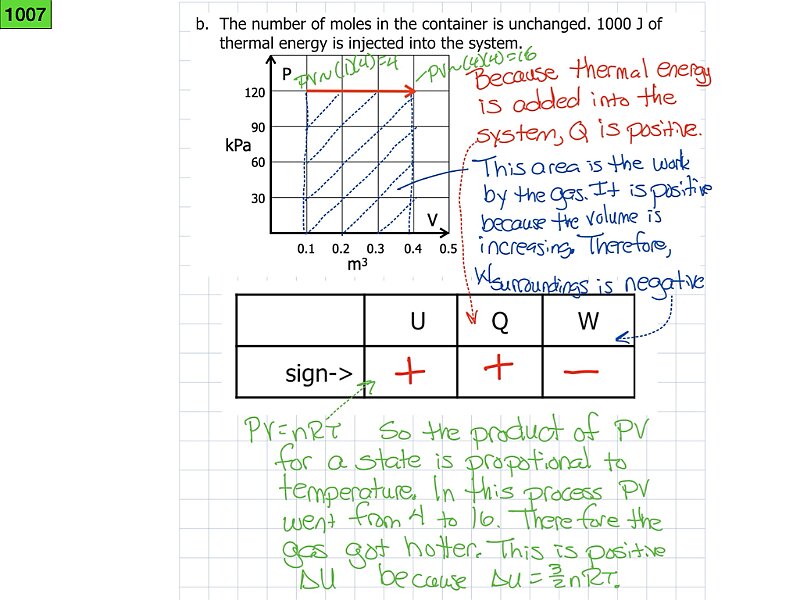 1007
b. The number of moles in the container is unchanged. 1000 J of
thermal energy is injected into the system.
PV~(1)(4)=4
PV~(4)(4)=16
P
120
90
kPa
60
30
V
0.1 0.2 0.3 0.4 0.5
m³
Because thermal energy
is added into the
system, Q is positive.
This area is the work
by the gas. It is positive
because the volume is
increasing. Therefore,
Wsurroundings is negative
U Q W
sign-> + + −
PV=nRT So the product of PV
for a state is propotional to
temperature. In this process PV
went from 4 to 16. Therefore the
gas got hotter. This is positive
ΔU because ΔU = 3/2nRT.